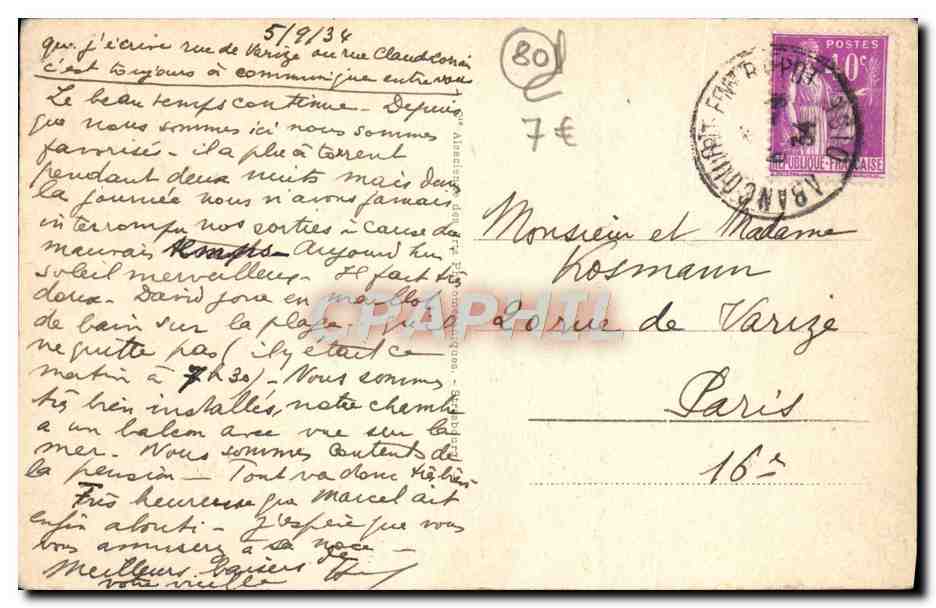 5/9/34
que j'écrive rue de Varize ou rue Claude Lorrain
c'est toujours à communiquer entre vous
Le beau temps continue - Depuis
que nous sommes ici nous sommes
favorisés - il a plu à torrent
pendant deux nuits mais dans
la journée nous n'avons jamais
interrompu nos sorties à cause du
mauvais temps - Aujourd'hui
soleil merveilleux - Il fait très
doux - David joue en maillot
de bain sur la plage, qu'il
ne quitte pas (il y était ce
matin à 7h30) - Nous sommes
très bien installés, notre chambre
a un balcon avec vue sur la
mer - Nous sommes contents de
la pension - Tout va donc très bien
Très heureuse que Marcel ait
enfin abouti - J'espère que vous
vous amuserez à sa noce -
Meilleurs baisers de
votre vieille
80
7 €
POSTES
40c
RÉPUBLIQUE-FRANÇAISE
ABANCOURT
Monsieur et Madame
Kosmann
20 rue de Varize
Paris
16e
Cie Alsacienne des Arts Photomécaniques. - Strasbourg
CPAPHIL